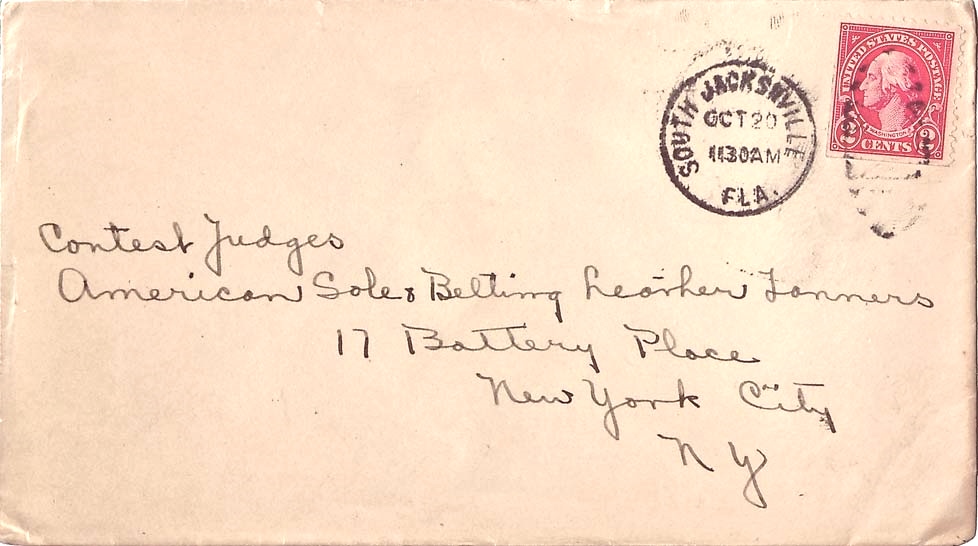 UNITED STATES POSTAGE
WASHINGTON
2 CENTS 2
SOUTH JACKSONVILLE
OCT 20
1130AM
FLA.
Contest Judges
American Sole & Belting Leather Tanners
17 Battery Place
New York City
N Y